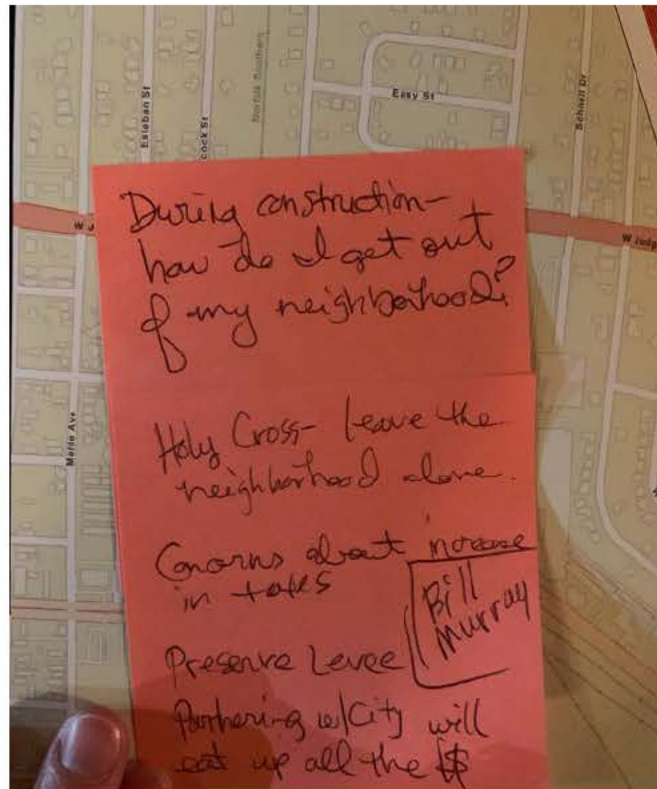 Esteban St
cock St
Norfolk Southern
Easy St
Schnell Dr
W J
W Judg
Mehle Ave
During construction-
how do I get out
of my neighborhood?
Holy Cross- leave the
neighborhood alone.
Concerns about increase
in taxes
Bill
Murray
Preserve Levee
Partnering w/City will
eat up all the $